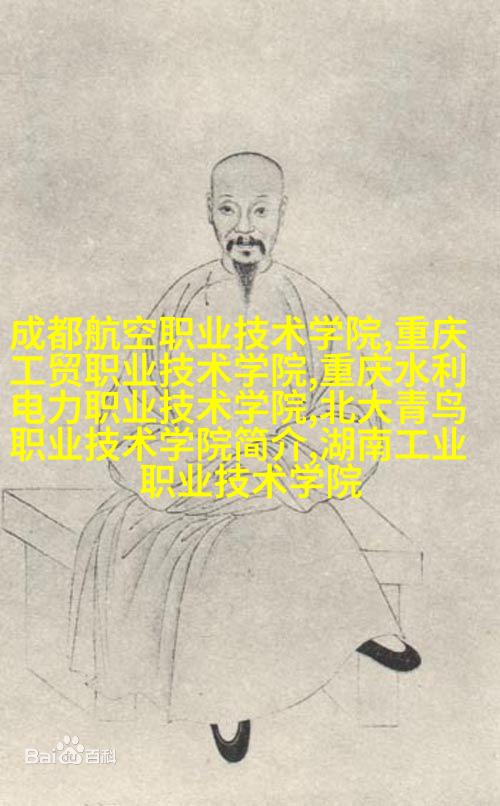 成都航空职业技术学院,重庆
工贸职业技术学院,重庆水利
电力职业技术学院,北大青鸟
职业技术学院简介,湖南工业
职业技术学院
Bai百科